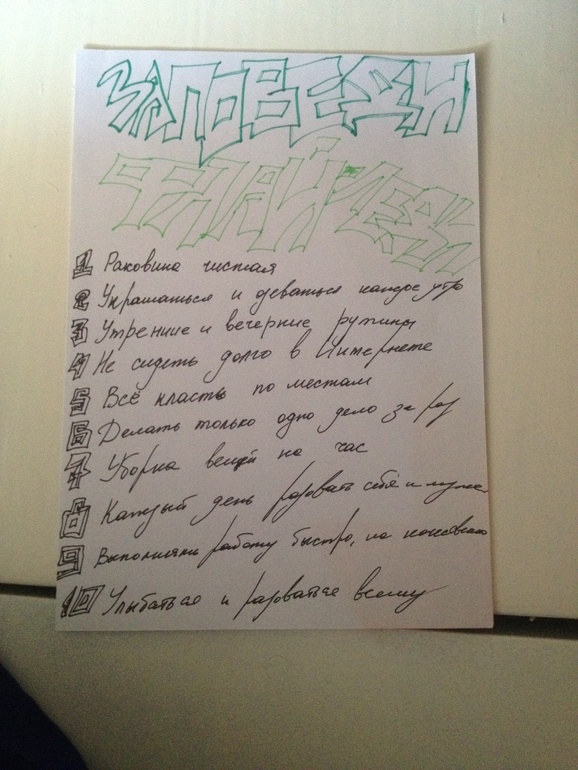 ЗАПОВЕДИ
ФЛАЙ ЛЕДИ
1 Раковина чистая
2 Украшаться и одеваться каждое утро
3 Утренние и вечерние рутины
4 Не сидеть долго в Интернете
5 Всё класть по местам
6 Делать только одно дело за раз
7 Уборка вещей на час
8 Каждый день радовать себя и мужа
9 Выполняй работу быстро, но
10 Улыбаться и радоваться всему